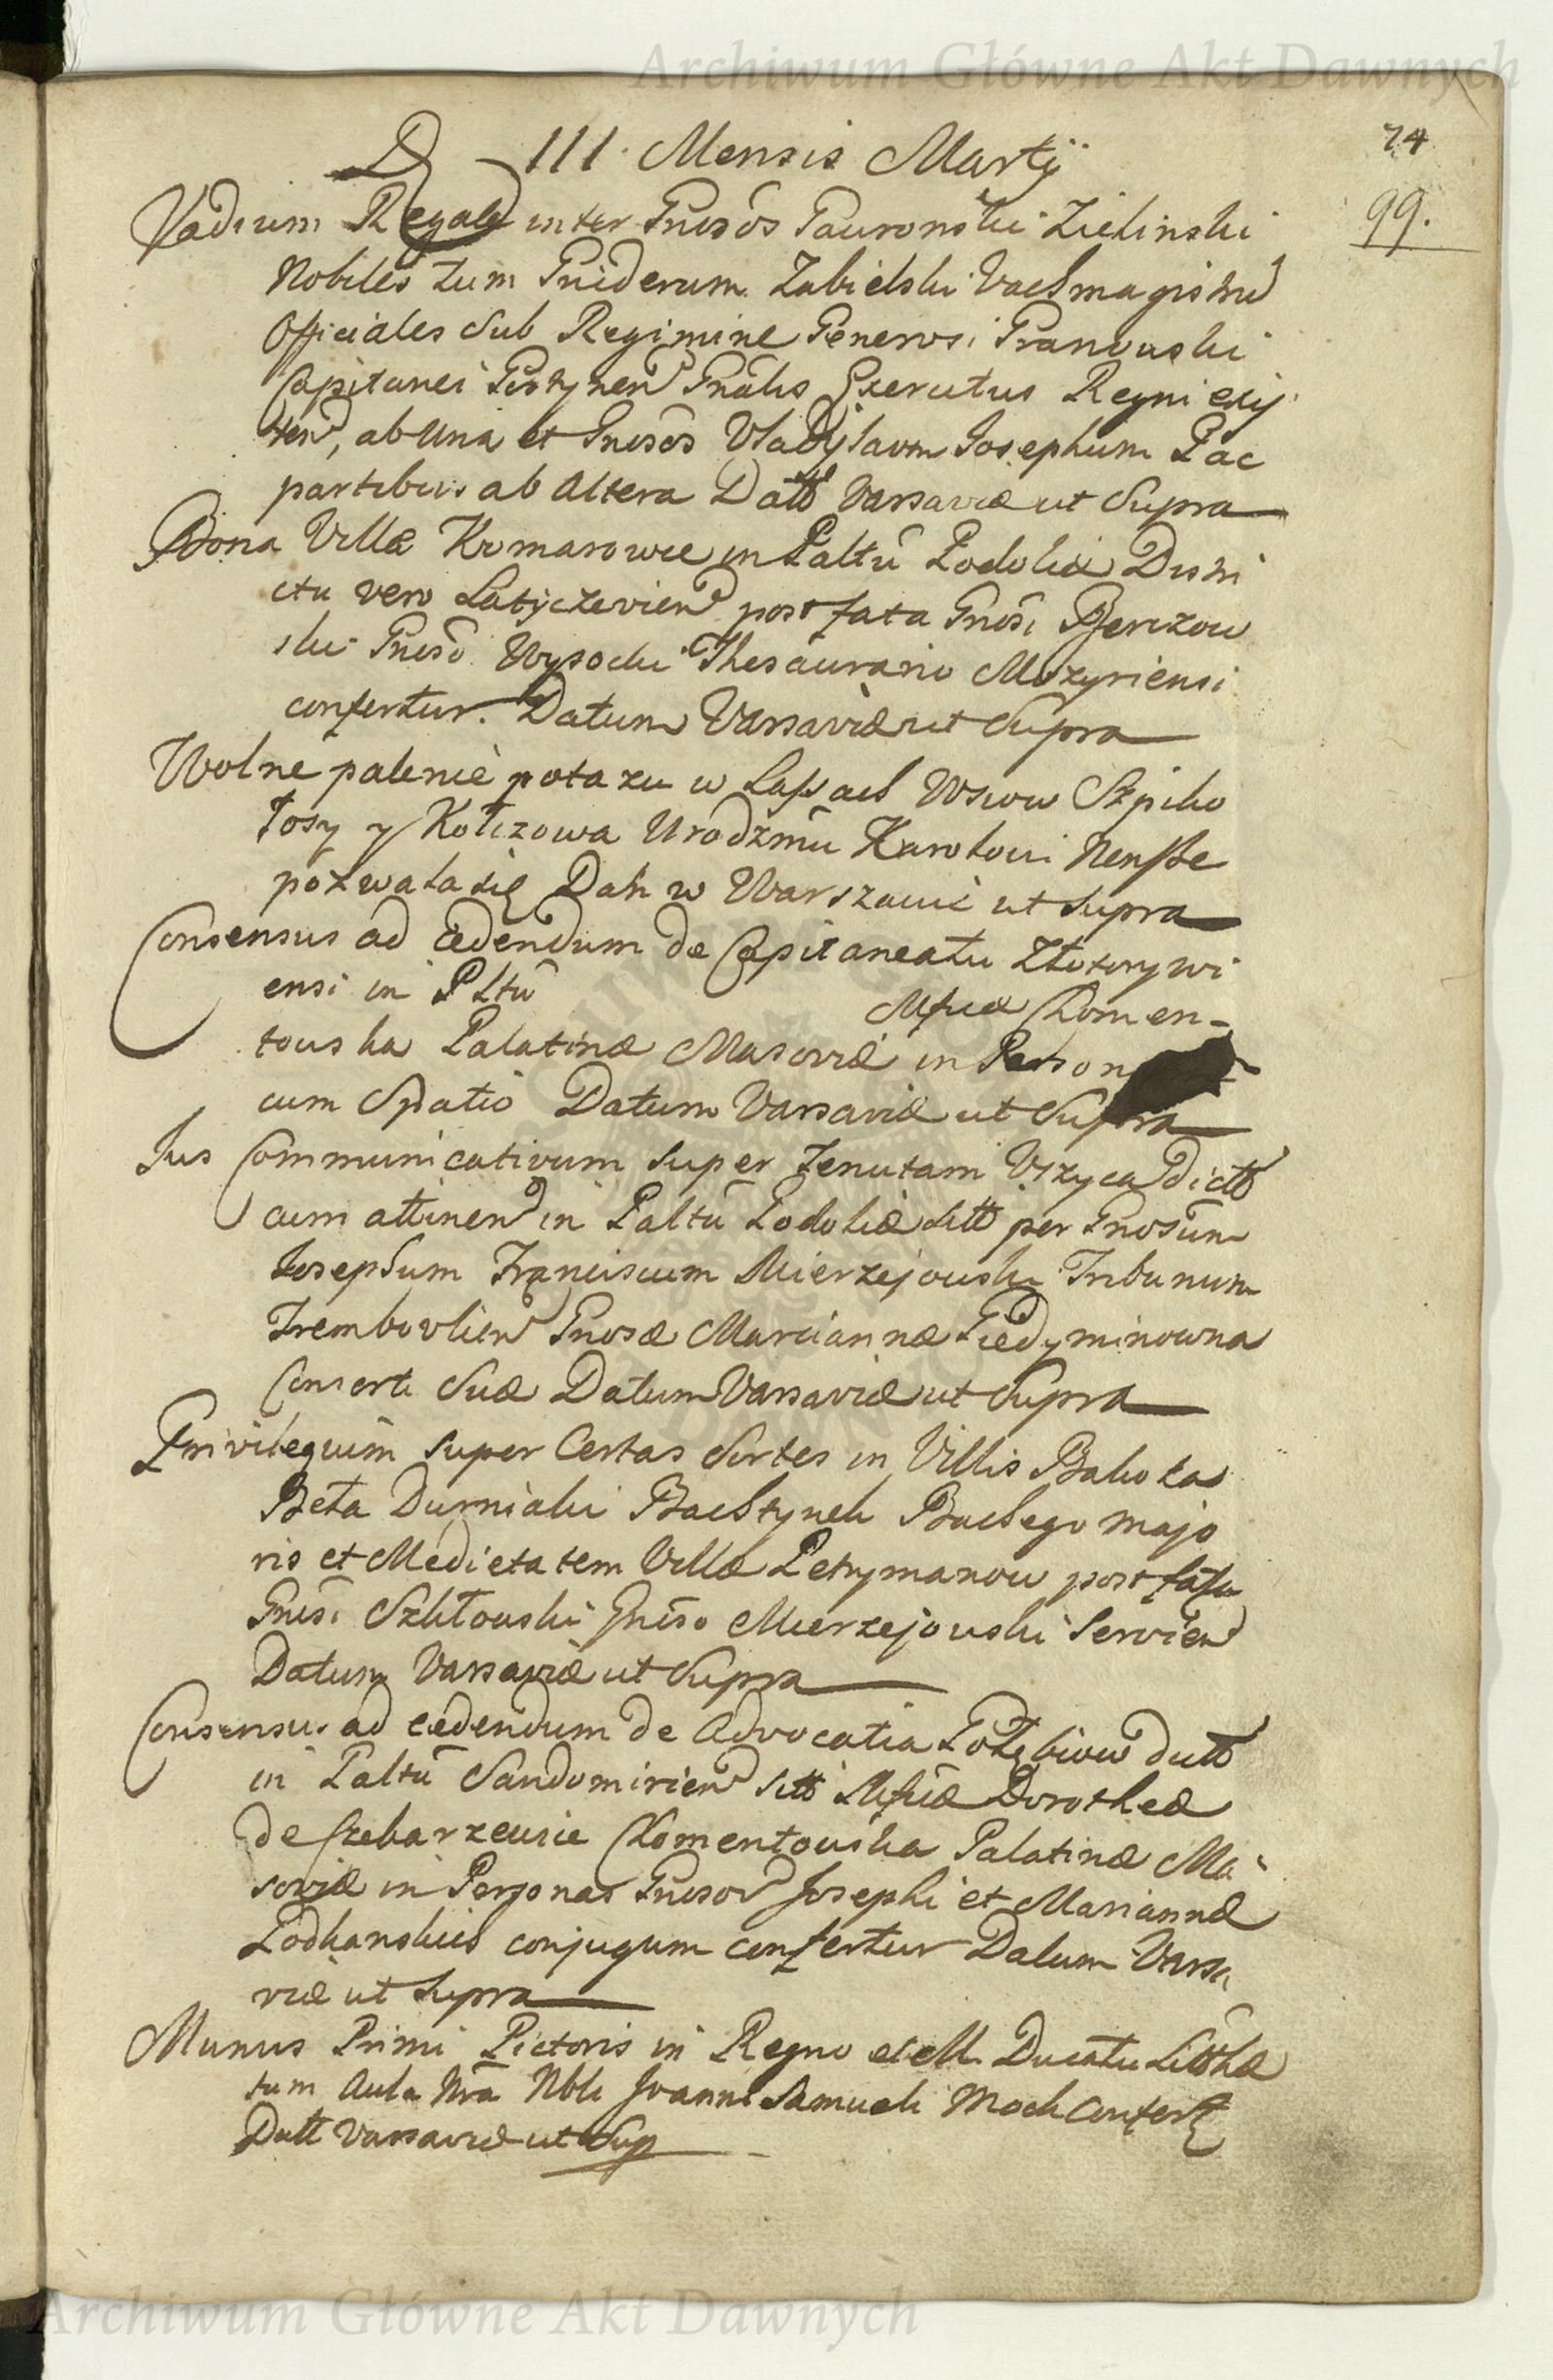 Archiwum Główne Akt Dawnych
D III Mensis Martij
74
99.
Vadium Regale inter Gnosos Zielinski
Nobiles tum Zabielski Vachmagistrum
Officiales sub Regimine Generosi
Capitanei Exercitus Regni exij
ten, ab una et Gnosos Vladislaum Josephum Pac
partibus ab altera Datt Varsaviæ ut supra
Bona Villæ Komarowce in Paltu Podoliæ Distri
ctu vero Latyczevien post fata Gnosi
ski Gnoso Wysocki Thesaurario Mozyriensi
confertur. Datum Varsaviæ ut supra
Wolne palenie potazu w Lassach Wsiow Szpiko
łosy y Kołczowa Urodzmu Karolowi
pozwala się Dah w Warszawie ut supra
Consensus ad cedendum de Capitaneatu
ensi in Pltu Mfcæ Chomen-
towska Palatinæ Masoviæ in Person
cum Spatio Datum Varsaviæ ut Supra
Jus Communicativum super Tenutam Uszyca dictt
cum attinen in Paltu Podoliæ sitt per Gnosum
Josephum Franciscum Mierzejowski Tribunum
Trembovlien Gnosæ Mariannæ Giedyminowna
Consorti Suæ Datum Varsaviæ ut Supra
Privilegium super Certas Sortes in Villis Bakota
Beła Durniaki Bachtynek majo
ris et Medietatem Villæ post fata
Gnosi Gnoso Mierzejowski Servien
Datum Varsaviæ ut Supra
Consensus ad cedendum de Advocatia Gołębiow dictt
in Paltu Sandomirien sitt Mfcæ Dorotheæ
de Chomentowska Palatinæ Ma
soviæ in Personas Gnosor Josephi et Mariannæ
conjugum confertur Datum Varsa
viæ ut supra
Munus Primi Pictoris in Regno et M. Ducatu Litthæ
tum Aula Nra Nbli Joanni Samueli Mock Confert
Datt Varsaviæ ut Sup
Archiwum Główne Akt Dawnych